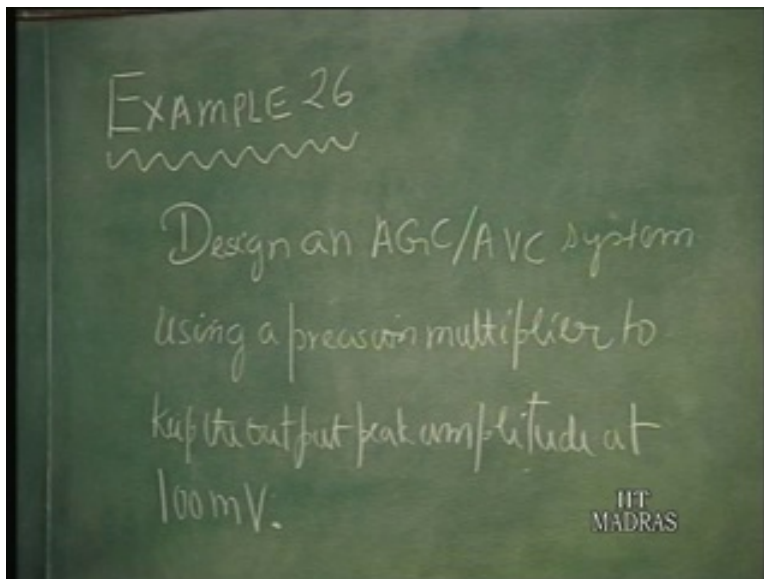 EXAMPLE 26
Design an AGC/AVC system
using a precision multiplier to
keep the output peak amplitude at
100mV.
IIT
MADRAS